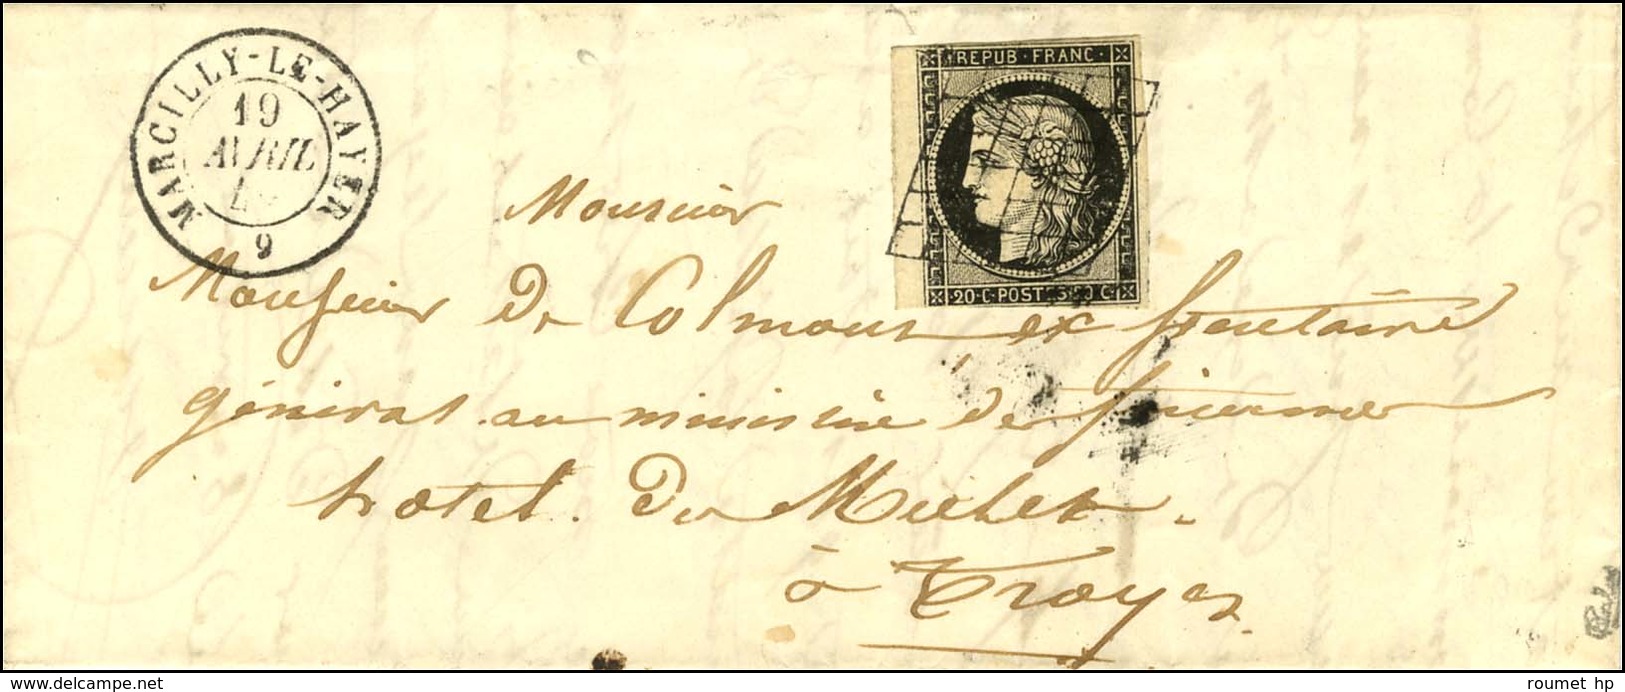 MARCILLY-LE-HAYER
19
AVRIL
9
REPUB·FRANC·
20·C·POST
C
Monsieur
Monsieur De Colmont ex
général au ministère de
hotel. Du Mulet.
à Troyes
www.delcampe.net
roumet hp